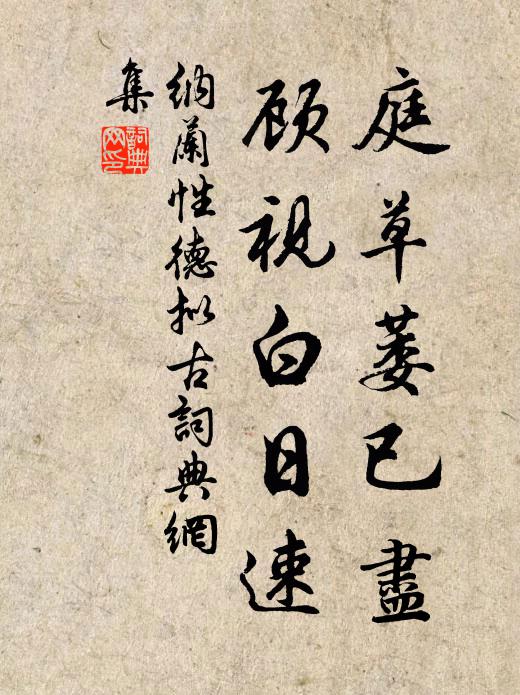 庭草萎已盡
顾視白日速
納蘭性德拟古詞典網
集
詞典网印